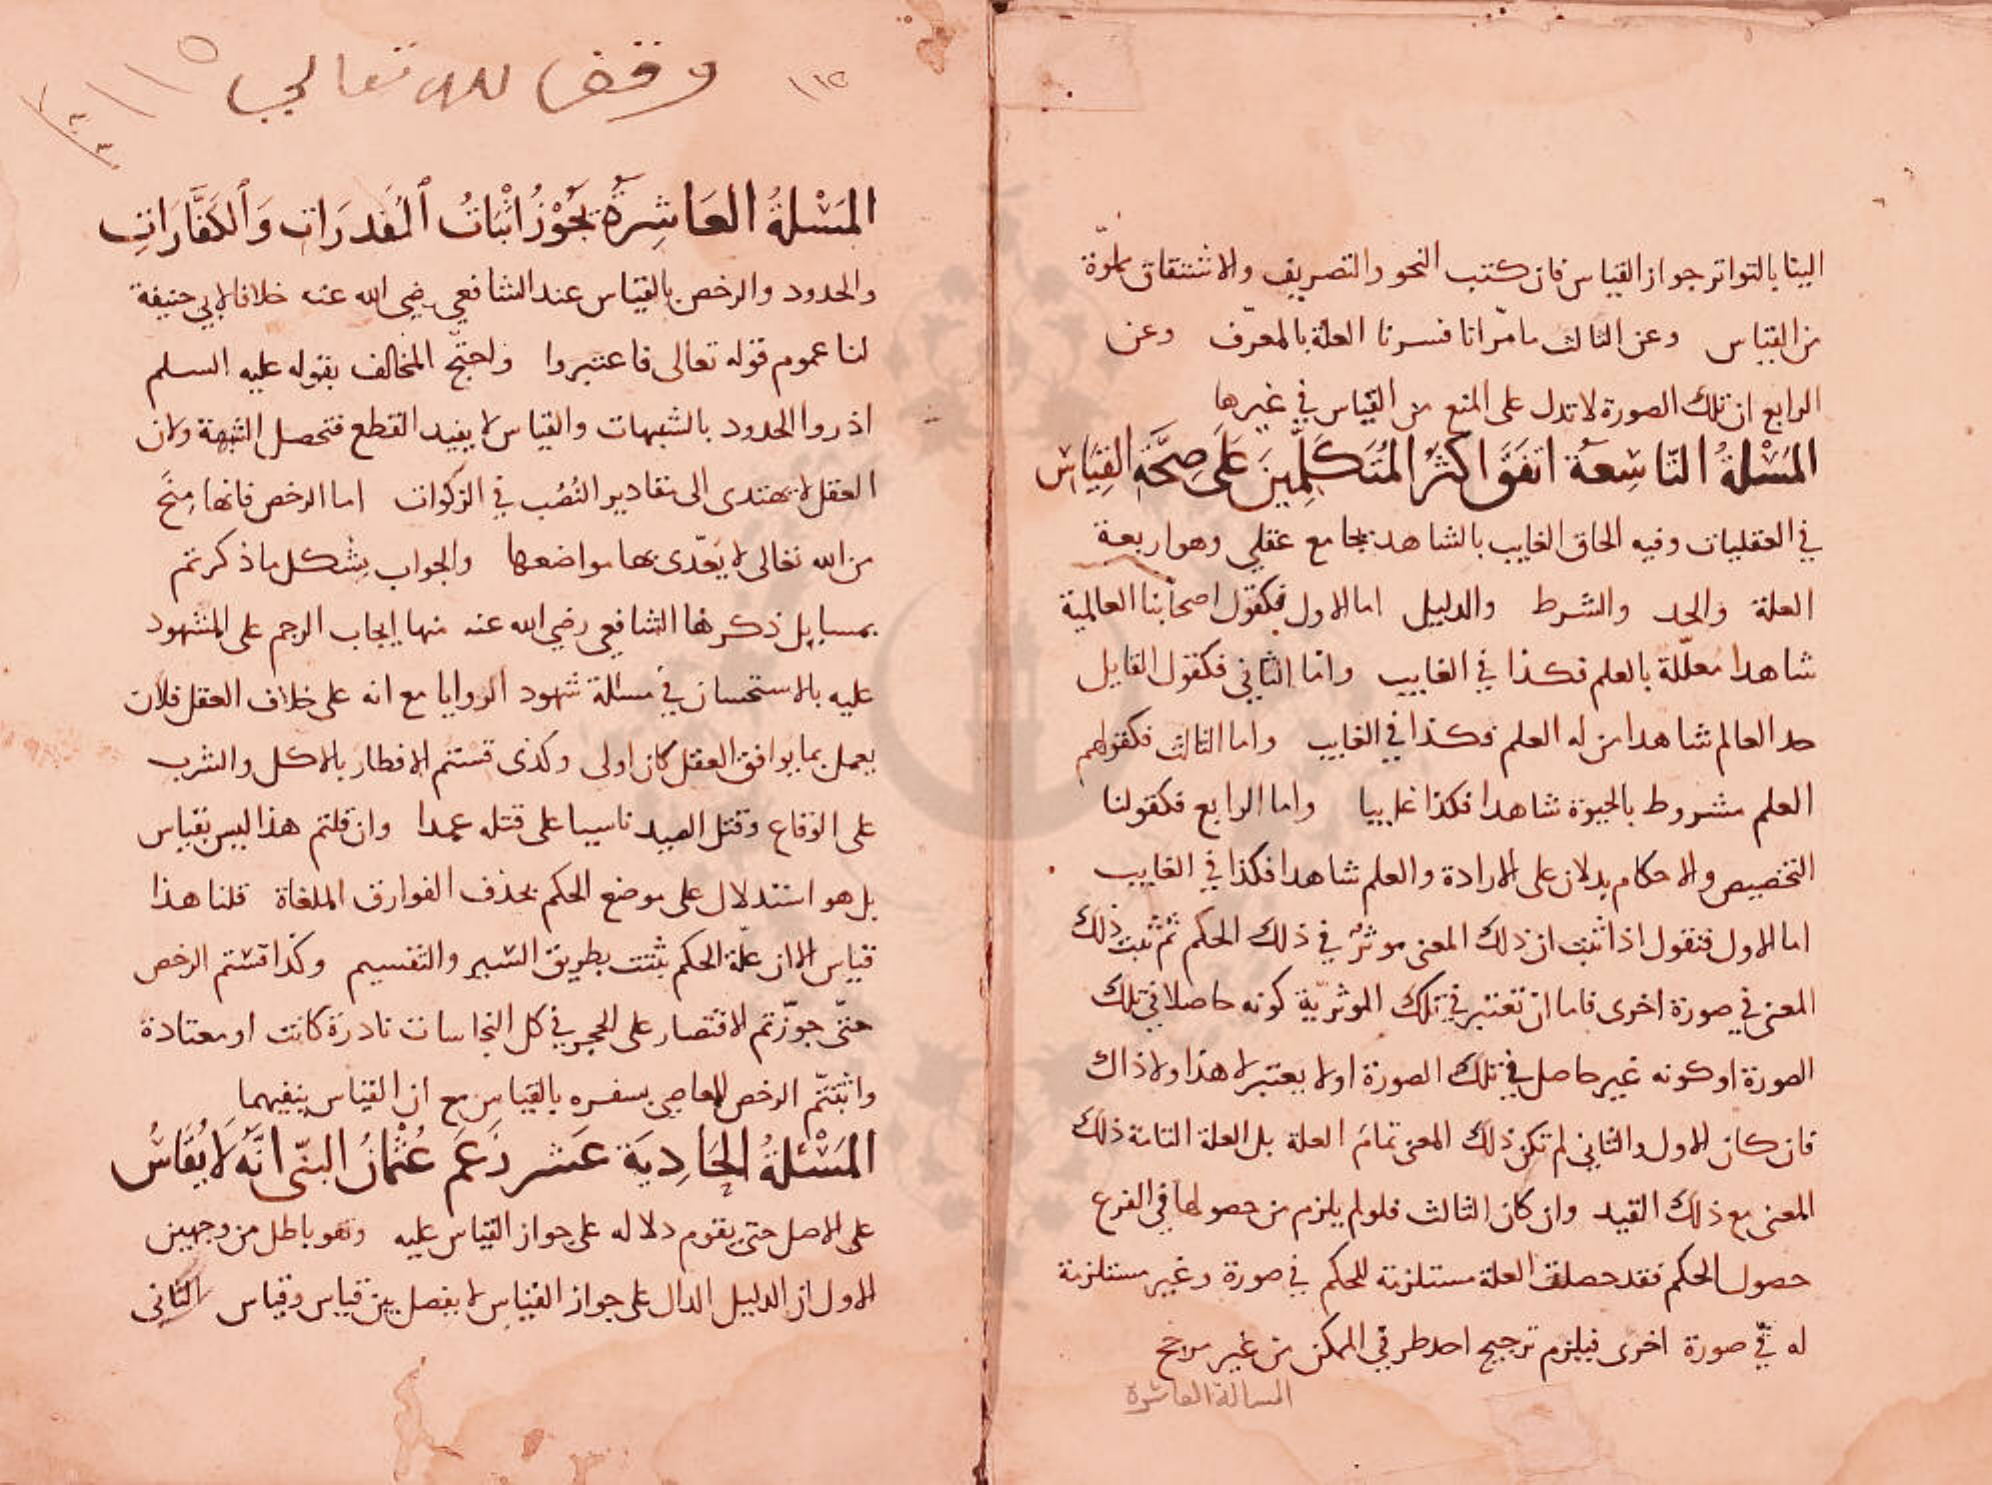 الينا بالتواتر جواز القياس فان كتب النحو والتصريف والاشتقاق مملوّة
من القياس وعن الثالث ما مرّ انا فسرنا العلة بالمعرّف وعن
الرابع ان تلك الصورة لا تدل على المنع من القياس في غيرها
المَسْئلةُ التّاسِعَة اتفَقَ اكثرُ المُتَكَلِّمينَ عَلَى صِحَّةِ القِيَاسِ
في العقليات وفيه الحاق الغايب بالشاهد بجامع عقلي وهو اربعة
العلة والحد والشرط والدليل اما الاول فكقول اصحابنا العالمية
شاهدا معلّلة بالعلم فكذا في الغايب واما الثاني فكقول القايل
حد العالم شاهدا من له العلم فكذا في الغايب واما الثالث فكقولهم
العلم مشروط بالحيوة شاهدا فكذا غايبا واما الرابع فكقولنا
التخصيص والاحكام يدلان على الارادة والعلم شاهدا فكذا في الغايب
اما الاول فنقول اذا ثبت ان ذلك المعنى موثرٌ في ذلك الحكم ثم ثبت ذلك
المعنى في صورة اخرى فاما ان تعتبر في تلك الموثريّة كونه حاصلا في تلك
الصورة او كونه غير حاصل في تلك الصورة او لا يعتبر لا هذا ولا ذاك
فان كان الاول والثاني لم تكن ذلك المعنى تمامَ العلة بل العلة التامة ذلك
المعنى مع ذلك القيد وان كان الثالث فلو لم يلزم من حصولها في الفرع
حصول الحكم فقد حصلت العلة مستلزمة للحكم في صورة وغير مستلزمة
له في صورة اخرى فيلزم ترجيح احد طرفي الممكن من غير مرجح
المسالة العاشرة
وقف لله تعالى ١١٥
١١٢
المَسْئلةُ العَاشِرَةُ يَجُوْزُ اثْبَاتُ المُقدرَات وَالكَفَّارَاتِ
والحدود والرخص بالقياس عند الشافعي رضي الله عنه خلافا لابي حنيفة
لنا عموم قوله تعالى فاعتبروا واحتجّ المخالف بقوله عليه السلم
ادروا الحدود بالشبهات والقياس لا يفيد القطع فتحصل الشبهة ولان
العقل لا يهتدى الى تقادير النُصُب في الزكوات اما الرخص فانها مِنَح
من الله تعالى لا يَعّدى بها مواضعها والجواب يشكل ما ذكرتم
بمسايل ذكرها الشافعي رضي الله عنه منها ايجاب الرجم على المشهود
عليه بالاستحسان في مسئلة شهود الزوايا مع انه على خلاف العقل فلان
يعمل بما يوافق العقل كان اولى وكذى قستم الافطار بالاكل والشرب
على الوقاع وقتل الصيد ناسيا على قتله عمدا وان قلتم هذا ليس بقياس
بل هو استدلال على موضع الحكم بحذف الفوارق الملغاة قلنا هذا
قياس الا ان علّة الحكم يثبت بطريق السبر والتقسيم وكذا قستم الرخص
حتّى جوّزتم الاقتصار على الحجر في كل النجاسات نادرة كانت او معتادة
واثبتّم الرخص للعاصي بسفره بالقياس مع ان القياس ينفيهما
المَسْئلةُ الحَادِيَة عَشر زَعَمَ عُثمَانُ البتّي انَّهُ لَا يُقَاسُ
على الاصل حتى يقوم دلالة على جواز القياس عليه وهو باطل من وجهين
الاول ان الدليل الدال على جواز القياس لا يفصل بين قياس وقياس الثاني